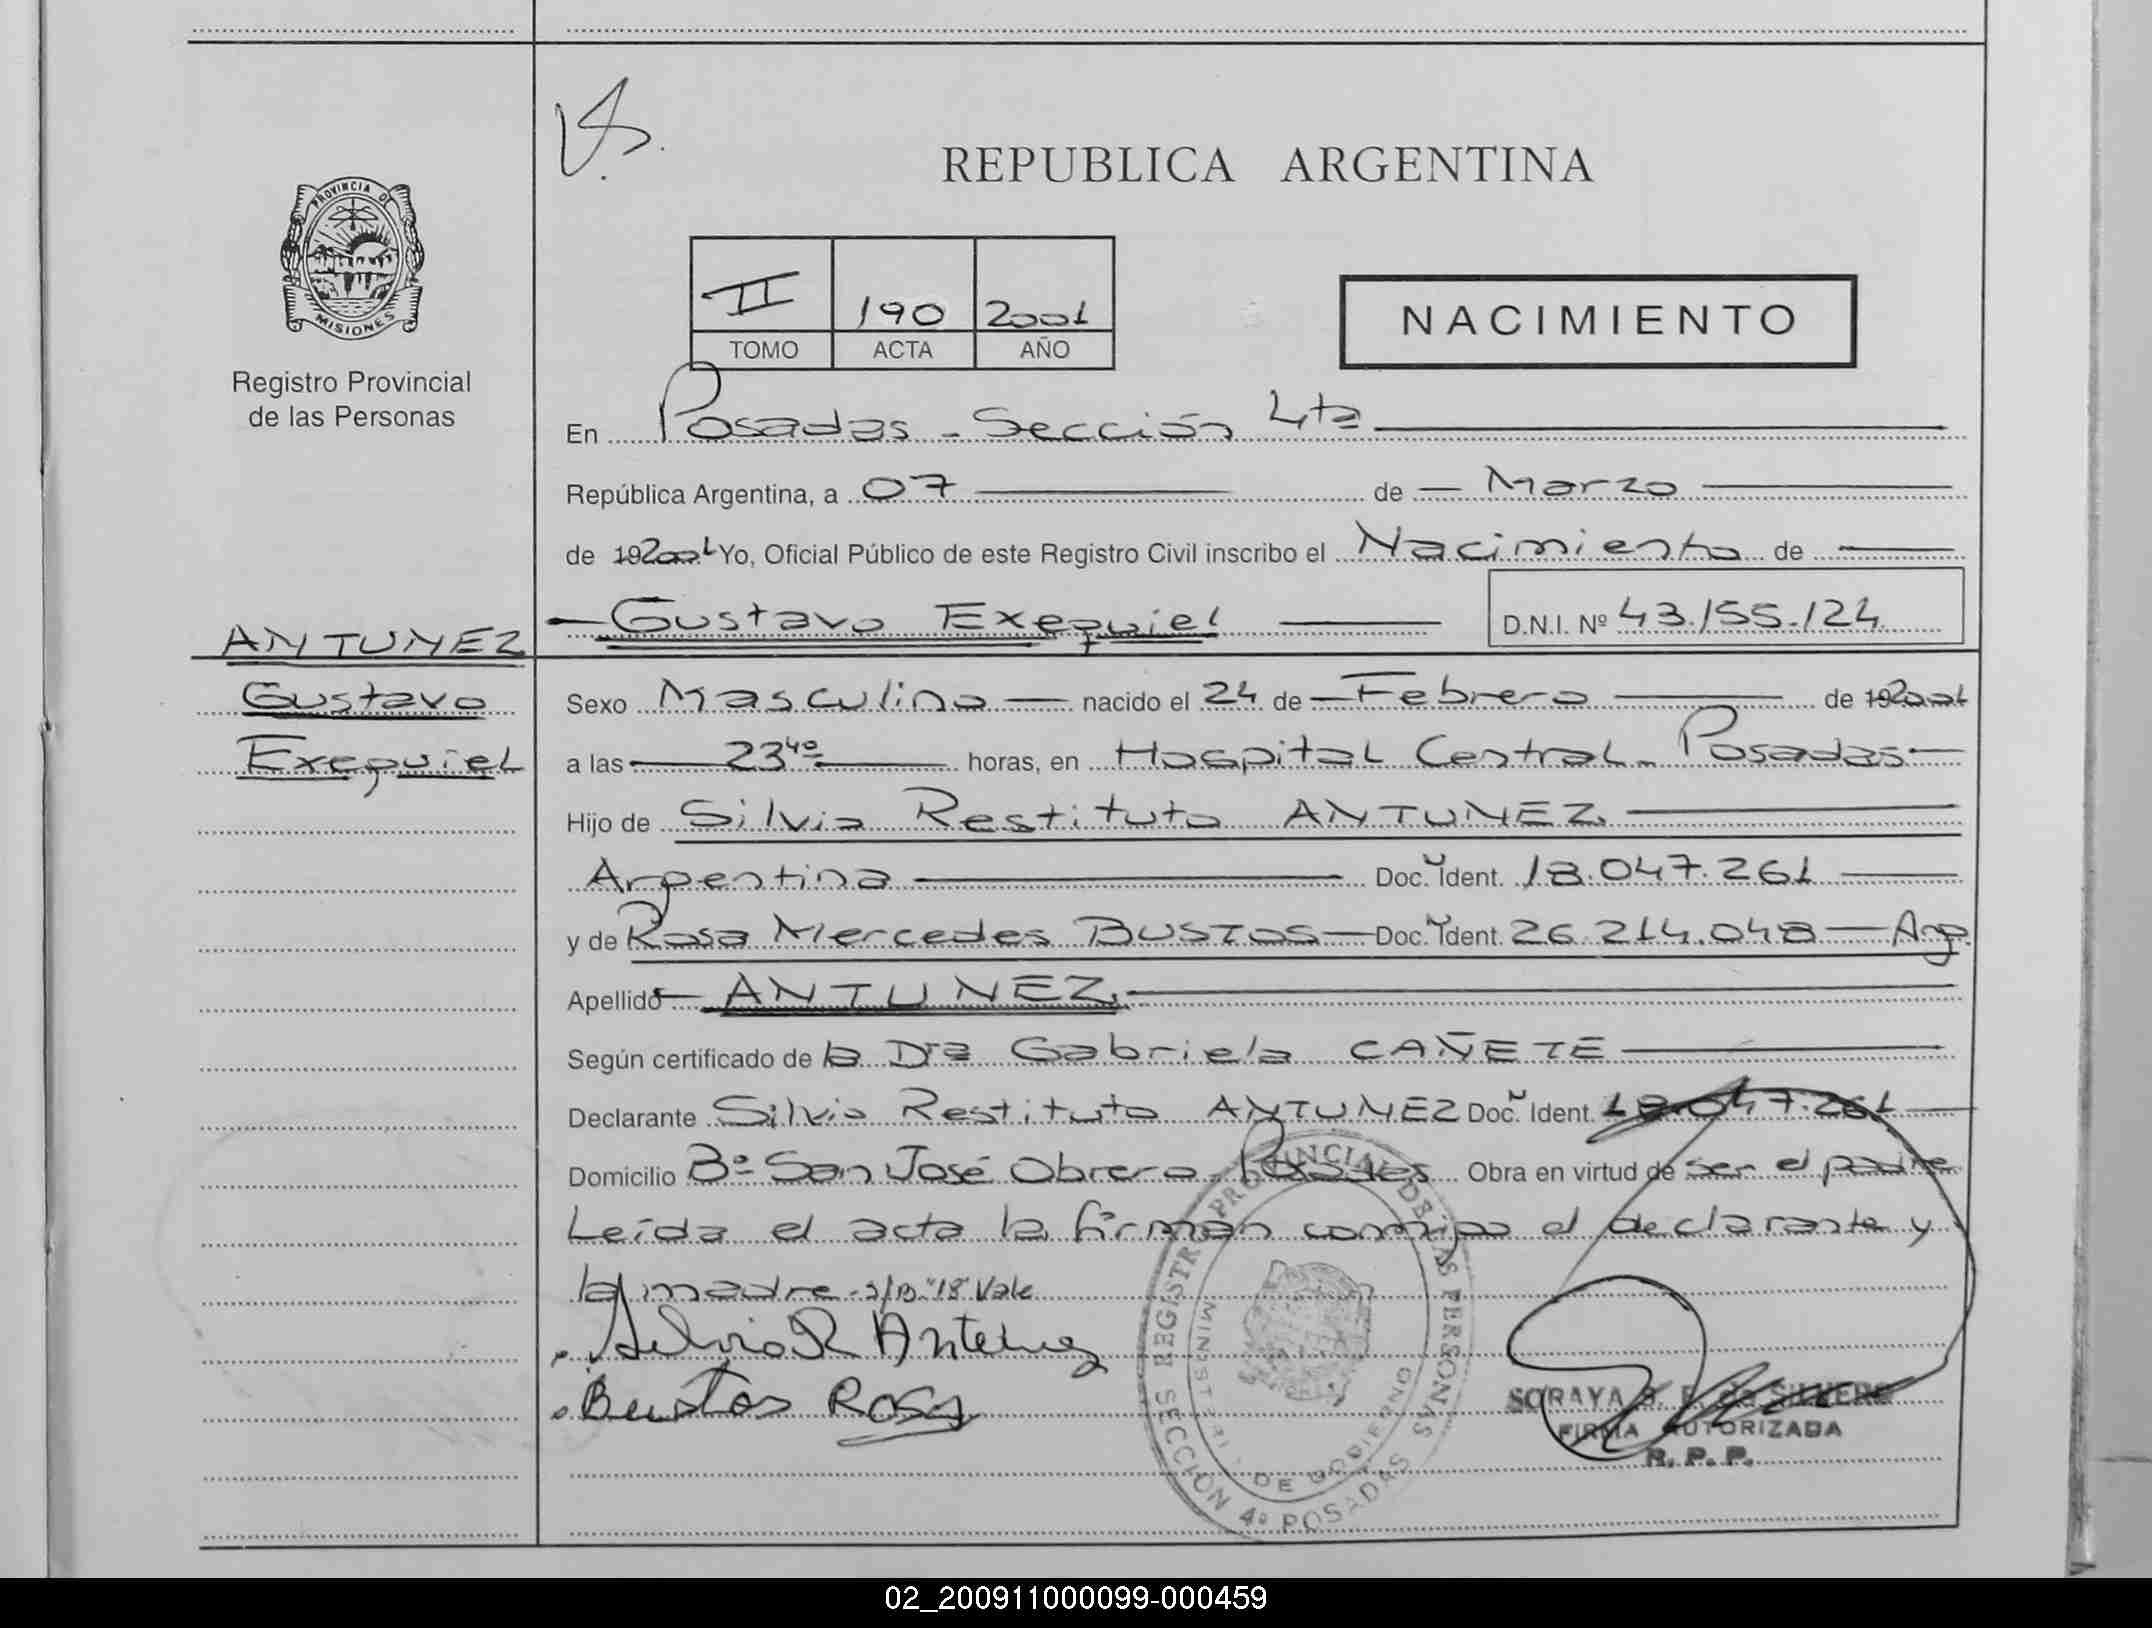 REPUBLICA ARGENTINA
PROVINCIA DE
MISIONES
Registro Provincial
de las Personas
II 190 2001
TOMO ACTA AÑO
NACIMIENTO
En Posadas - Sección 4ta
República Argentina, a 07 de Marzo
de 192001 Yo, Oficial Público de este Registro Civil inscribo el Nacimiento de
Gustavo Exequiel D.N.I. Nº 43.155.124
ANTUNEZ
Gustavo
Exequiel
Sexo Masculino nacido el 24 de Febrero de 192001
a las 23 40 horas, en Hospital Central - Posadas
Hijo de Silvio Restituto ANTUNEZ.
Argentina Doc. Ident. 18.047.261
y de Rosa Mercedes BUSTOS Doc. Ident. 26.214.048 - Arg.
Apellido ANTUNEZ.
Según certificado de la Dra Gabriela CAÑETE
Declarante Silvio Restituto ANTUNEZ Doc. Ident. 18.047.261
Domicilio Bº San José Obrero - Posadas Obra en virtud de ser el padre
Leída el acta la firman conmigo el declarante y
la madre - s/B "18" Vale
Silvio R Antunez
Bustos Rosa
REGISTRO PROVINCIAL DE LAS PERSONAS
MINISTERIO DE GOBIERNO
SECCION 4º POSADAS
SORAYA B. F. de SILVERO
FIRMA AUTORIZADA
R. P. P.
02_200911000099-000459